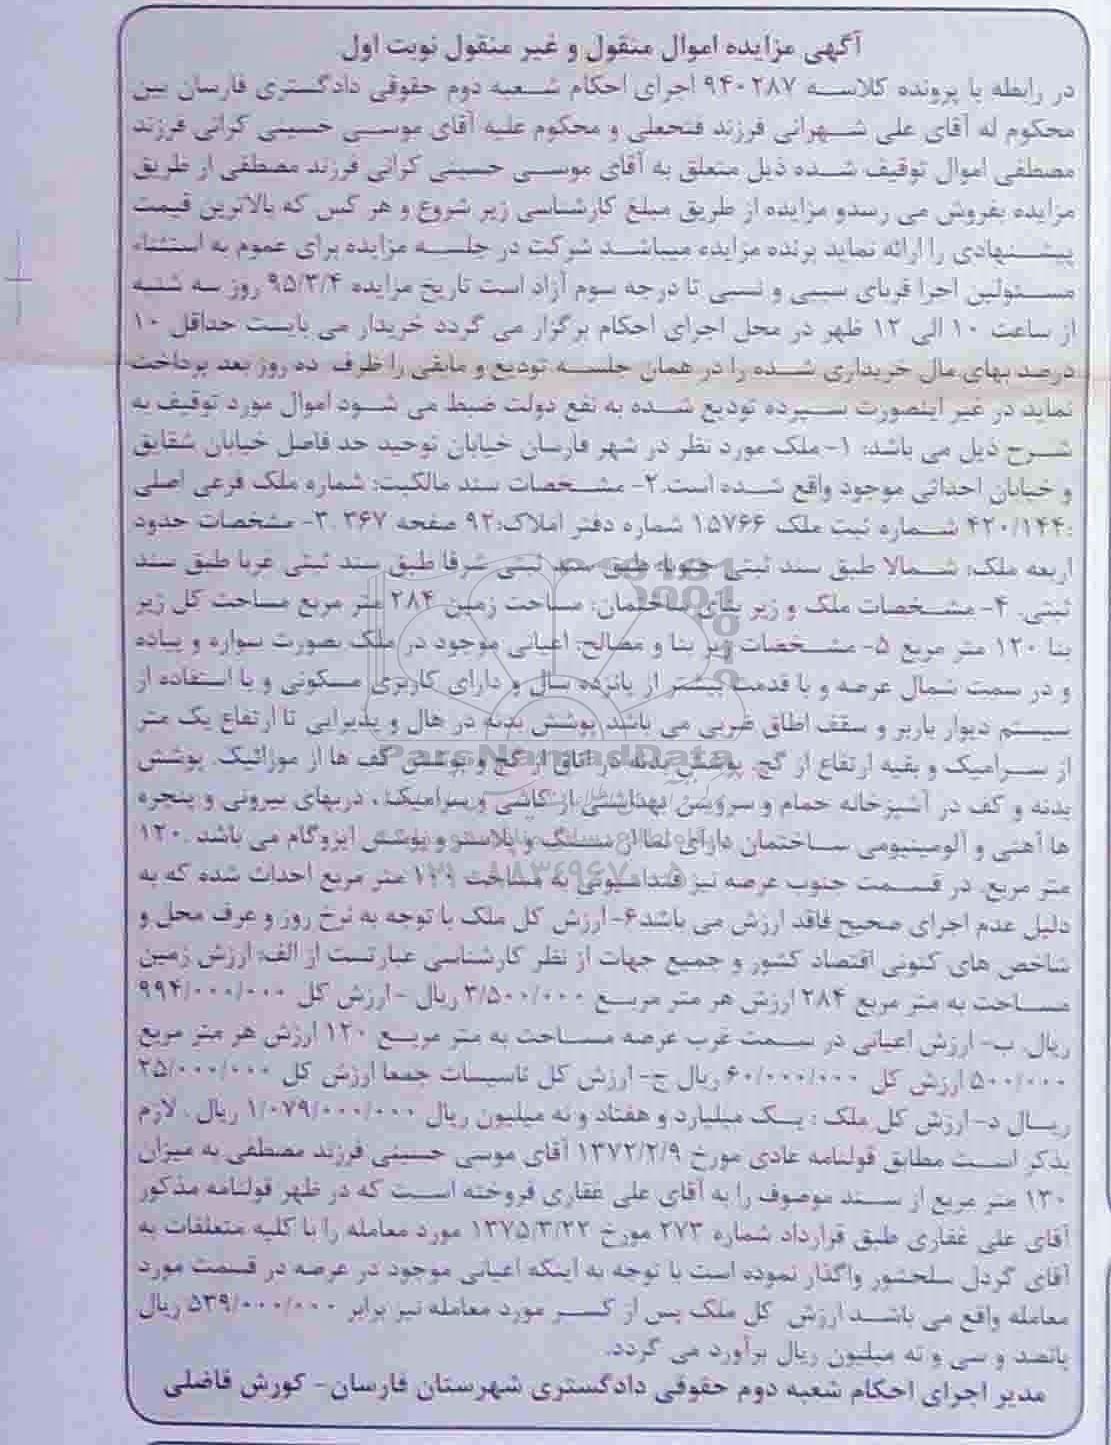 آگهی مزایده اموال منقول و غیر منقول نوبت اول
در رابطه با پرونده کلاسه ۹۴۰۲۸۷ اجرای احکام شعبه دوم حقوقی دادگستری فارسان بین
محکوم له آقای علی شهرانی فرزند فتحعلی و محکوم علیه آقای موسی حسینی کرانی فرزند
مصطفی اموال توقیف شده ذیل متعلق به آقای موسی حسینی کرانی فرزند مصطفی از طریق
مزایده بفروش می رسدو مزایده از طریق مبلغ کارشناسی زیر شروع و هر کس که بالاترین قیمت
پیشنهادی را ارائه نماید برنده مزایده میباشد شرکت در جلسه مزایده برای عموم به استثناء
مسئولین اجرا قربای سببی و نسبی تا درجه سوم آزاد است تاریخ مزایده ۹۵/۳/۴ روز سه شنبه
از ساعت ۱۰ الی ۱۲ ظهر در محل اجرای احکام برگزار می گردد خریدار می بایست حداقل ۱۰
درصد بهای مال خریداری شده را در همان جلسه تودیع و مابقی را ظرف ده روز بعد پرداخت
نماید در غیر اینصورت سپرده تودیع شده به نفع دولت ضبط می شود اموال مورد توقیف به
شرح ذیل می باشد: ۱- ملک مورد نظر در شهر فارسان خیابان توحید حد فاصل خیابان شقایق
و خیابان احداثی موجود واقع شده است.۲- مشخصات سند مالکیت: شماره ملک فرعی اصلی
:۴۲۰/۱۴۴ شماره ثبت ملک ۱۵۷۶۶ شماره دفتر املاک:۹۲ صفحه ۳۶۷ .۳- مشخصات حدود
اربعه ملک: شمالا طبق سند ثبتی جنوبا: طبق سند ثبتی شرقا طبق سند ثبتی غربا طبق سند
ثبتی. ۴- مشخصات ملک و زیر بنای ساختمان: مساحت زمین ۲۸۴ متر مربع مساحت کل زیر
بنا ۱۲۰ متر مربع ۵- مشخصات زیر بنا و مصالح: اعیانی موجود در ملک بصورت سواره و پیاده
و در سمت شمال عرصه و با قدمت بیشتر از پانزده سال و دارای کاربری مسکونی و با استفاده از
سیستم دیوار باربر و سقف اطاق ضربی می باشد پوشش بدنه در هال و پذیرایی تا ارتفاع یک متر
از سرامیک و بقیه ارتفاع از گچ. پوشش بدنه در اتاق از گچ و پوشش کف ها از موزائیک. پوشش
بدنه و کف در آشپزخانه حمام و سرویس بهداشتی از کاشی و سرامیک. دربهای بیرونی و پنجره
ها آهنی و آلومینیومی ساختمان دارای نما از سنگ و پلاستر و پوشش ایزوگام می باشد .۱۲۰
متر مربع. در قسمت جنوب عرصه نیز فنداسیونی به مساحت ۱۲۱ متر مربع احداث شده که به
دلیل عدم اجرای صحیح فاقد ارزش می باشد۶- ارزش کل ملک با توجه به نرخ روز و عرف محل و
شاخص های کنونی اقتصاد کشور و جمیع جهات از نظر کارشناسی عبارتست از الف: ارزش زمین
مساحت به متر مربع ۲۸۴ ارزش هر متر مربع ۳/۵۰۰/۰۰۰ ریال - ارزش کل ۹۹۴/۰۰۰/۰۰۰
ریال. ب- ارزش اعیانی در سمت غرب عرصه مساحت به متر مربع ۱۲۰ ارزش هر متر مربع
۵۰۰/۰۰۰ ارزش کل ۶۰/۰۰۰/۰۰۰ ریال ج- ارزش کل تاسیسات جمعا ارزش کل ۲۵/۰۰۰/۰۰۰
ریال د- ارزش کل ملک : یک میلیارد و هفتاد و نه میلیون ریال ۱/۰۷۹/۰۰۰/۰۰۰ ریال . لازم
بذکر است مطابق قولنامه عادی مورخ ۱۳۷۲/۲/۹ آقای موسی حسینی فرزند مصطفی به میزان
۱۳۰ متر مربع از سند موصوف را به آقای علی غفاری فروخته است که در ظهر قولنامه مذکور
آقای علی غفاری طبق قرارداد شماره ۲۷۳ مورخ ۱۳۷۵/۳/۲۲ مورد معامله را با کلیه متعلقات به
آقای گردل سلحشور واگذار نموده است با توجه به اینکه اعیانی موجود در عرصه در قسمت مورد
معامله واقع می باشد ارزش کل ملک پس از کسر مورد معامله نیز برابر ۵۳۹/۰۰۰/۰۰۰ ریال
پانصد و سی و نه میلیون ریال برآورد می گردد.
مدیر اجرای احکام شعبه دوم حقوقی دادگستری شهرستان فارسان- کورش فاضلی
ParsNamadData